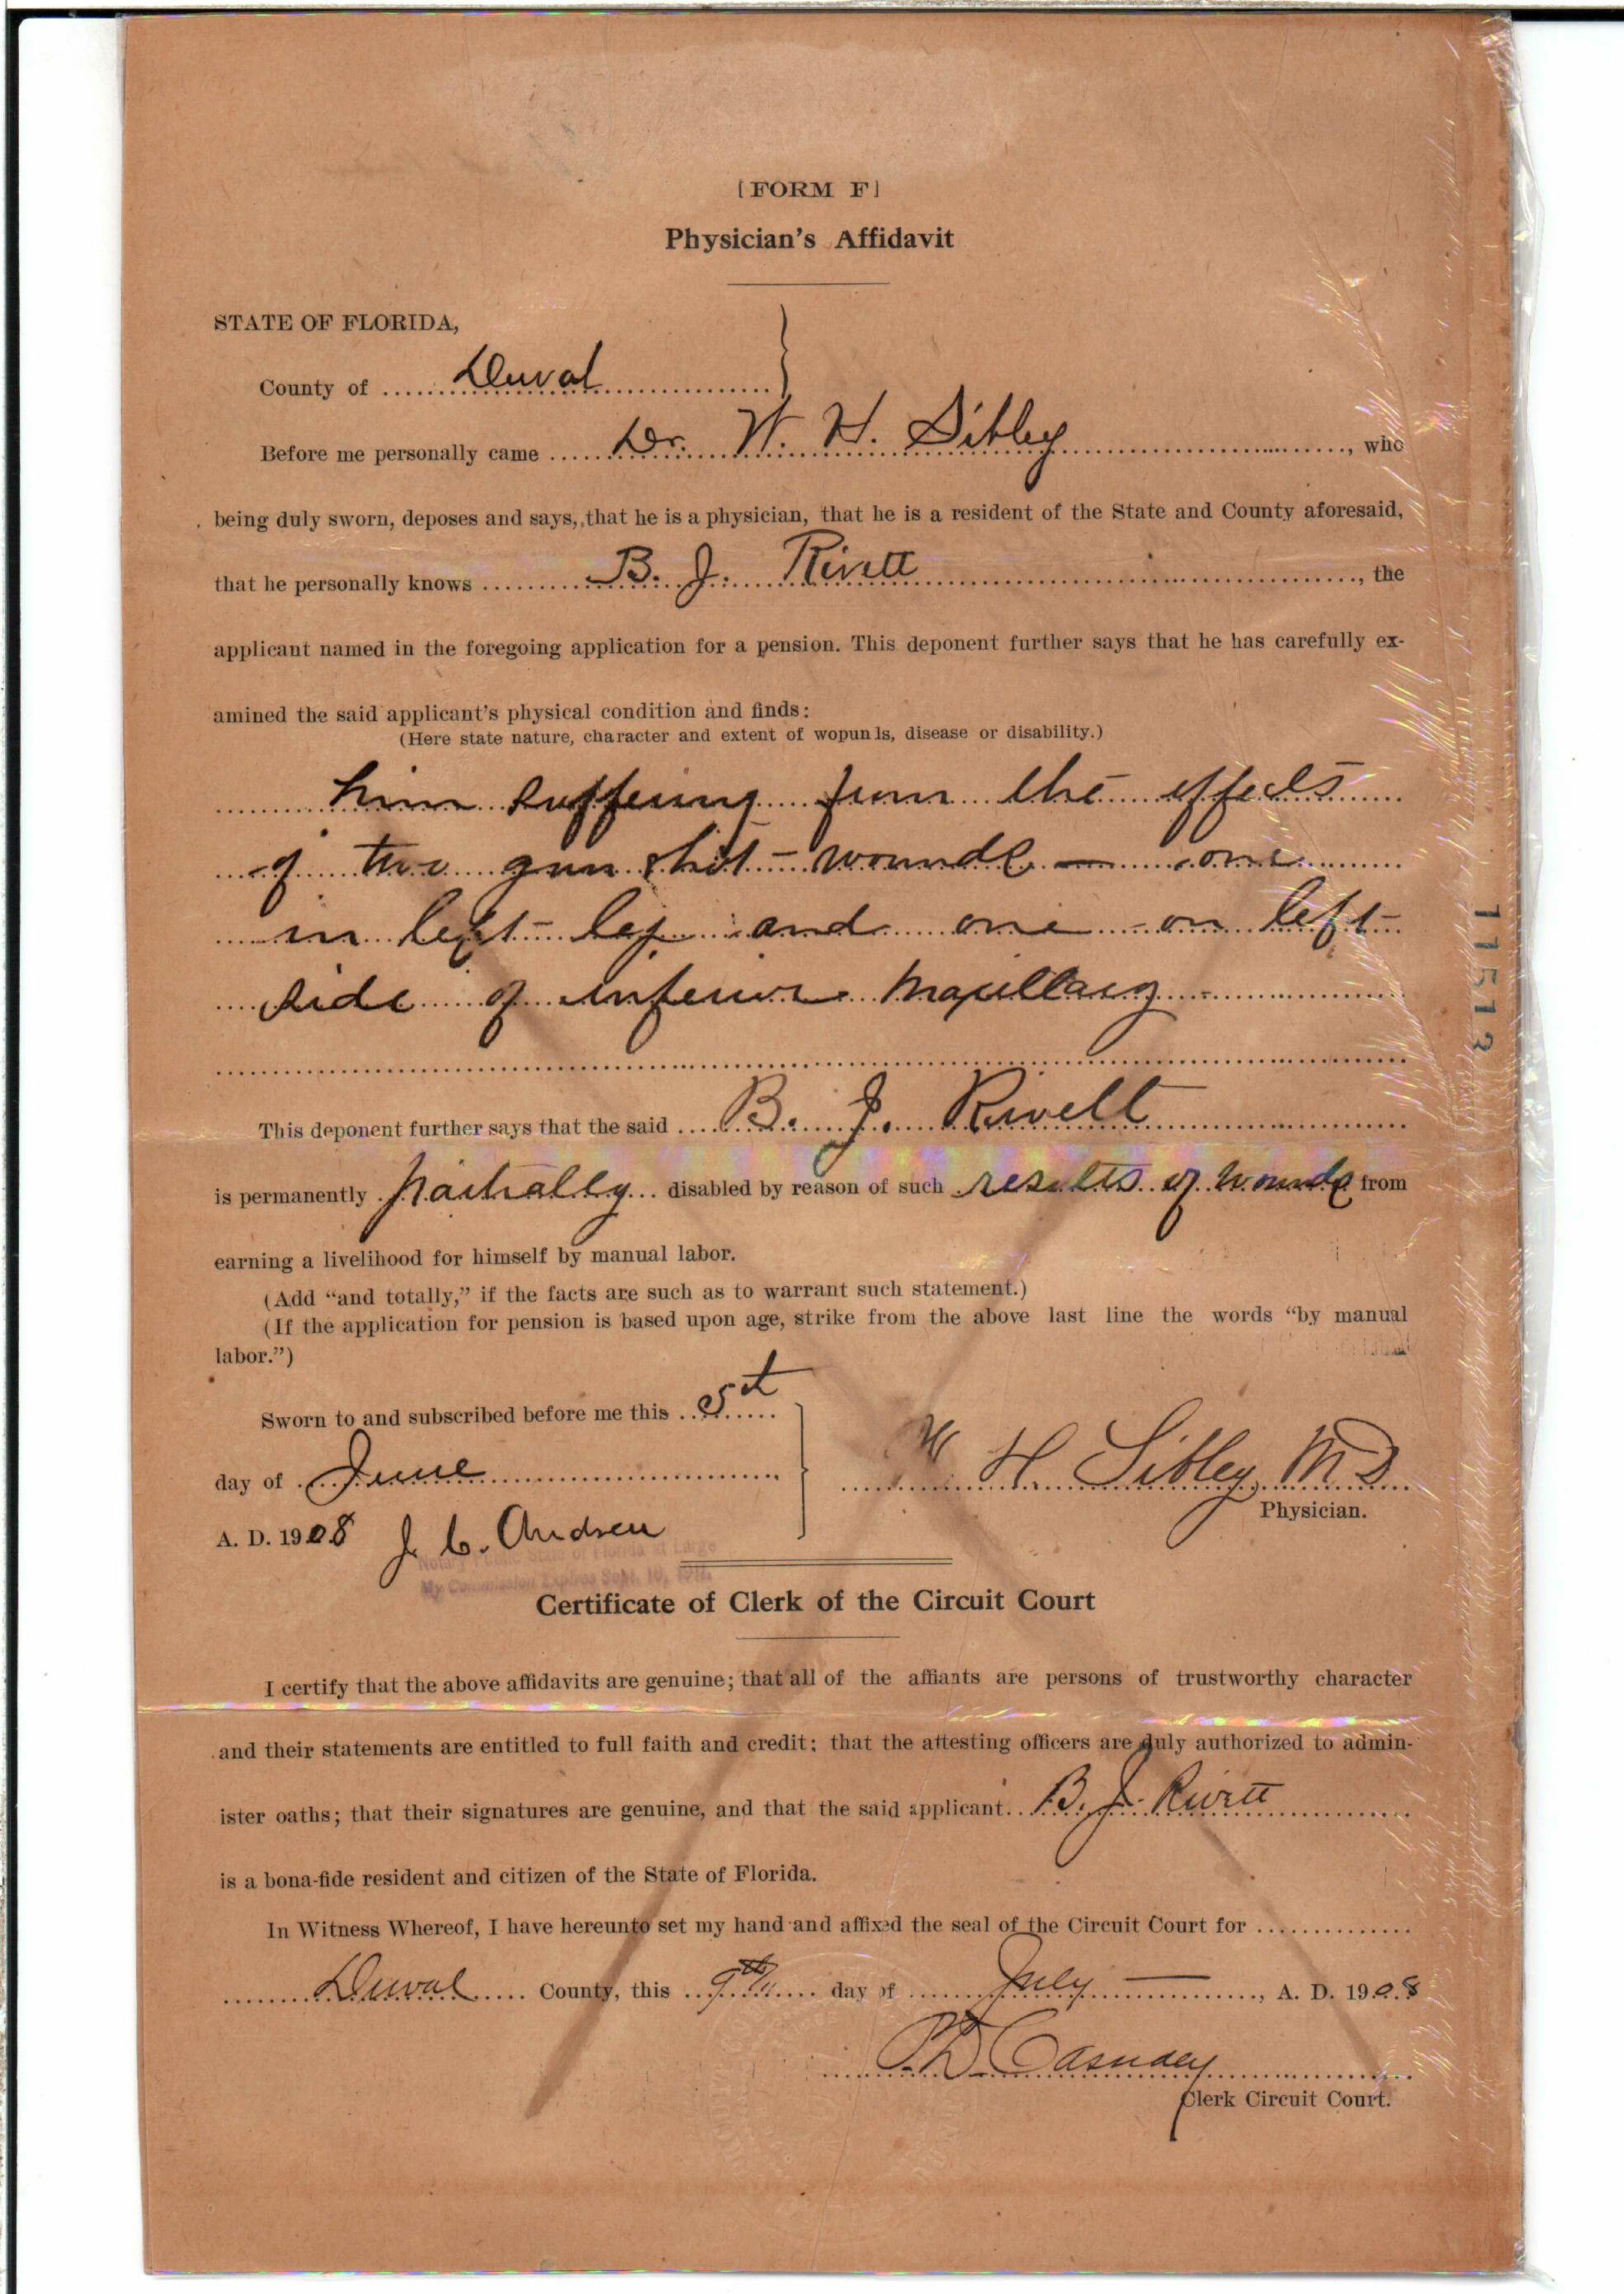 [FORM F]
Physician's Affidavit
STATE OF FLORIDA,
County of Duval
Before me personally came Dr. W. H. Sibley, who
being duly sworn, deposes and says, that he is a physician, that he is a resident of the State and County aforesaid,
that he personally knows B. J. Rivett, the
applicant named in the foregoing application for a pension. This deponent further says that he has carefully ex-
amined the said applicant's physical condition and finds:
(Here state nature, character and extent of wopun ls, disease or disability.)
him suffering from the effects
of two gun shot wounds — one
in left leg and one on left
side of inferior maxillary
This deponent further says that the said B. J. Rivett
is permanently partially disabled by reason of such results of wounds from
earning a livelihood for himself by manual labor.
(Add "and totally," if the facts are such as to warrant such statement.)
(If the application for pension is based upon age, strike from the above last line the words "by manual
labor.")
Sworn to and subscribed before me this 5th
day of June
W H. Sibley, M D
Physician.
A. D. 1908 J. C.
Notary Public State of Florida at Large
My Commission Expires Sept. 10,
Certificate of Clerk of the Circuit Court
I certify that the above affidavits are genuine; that all of the affiants are persons of trustworthy character
and their statements are entitled to full faith and credit; that the attesting officers are duly authorized to admin-
ister oaths; that their signatures are genuine, and that the said applicant B. J. Rivett
is a bona-fide resident and citizen of the State of Florida.
In Witness Whereof, I have hereunto set my hand and affixed the seal of the Circuit Court for
Duval County, this 9th day of July, A. D. 1908
P. D. Cassidey
Clerk Circuit Court.
11513